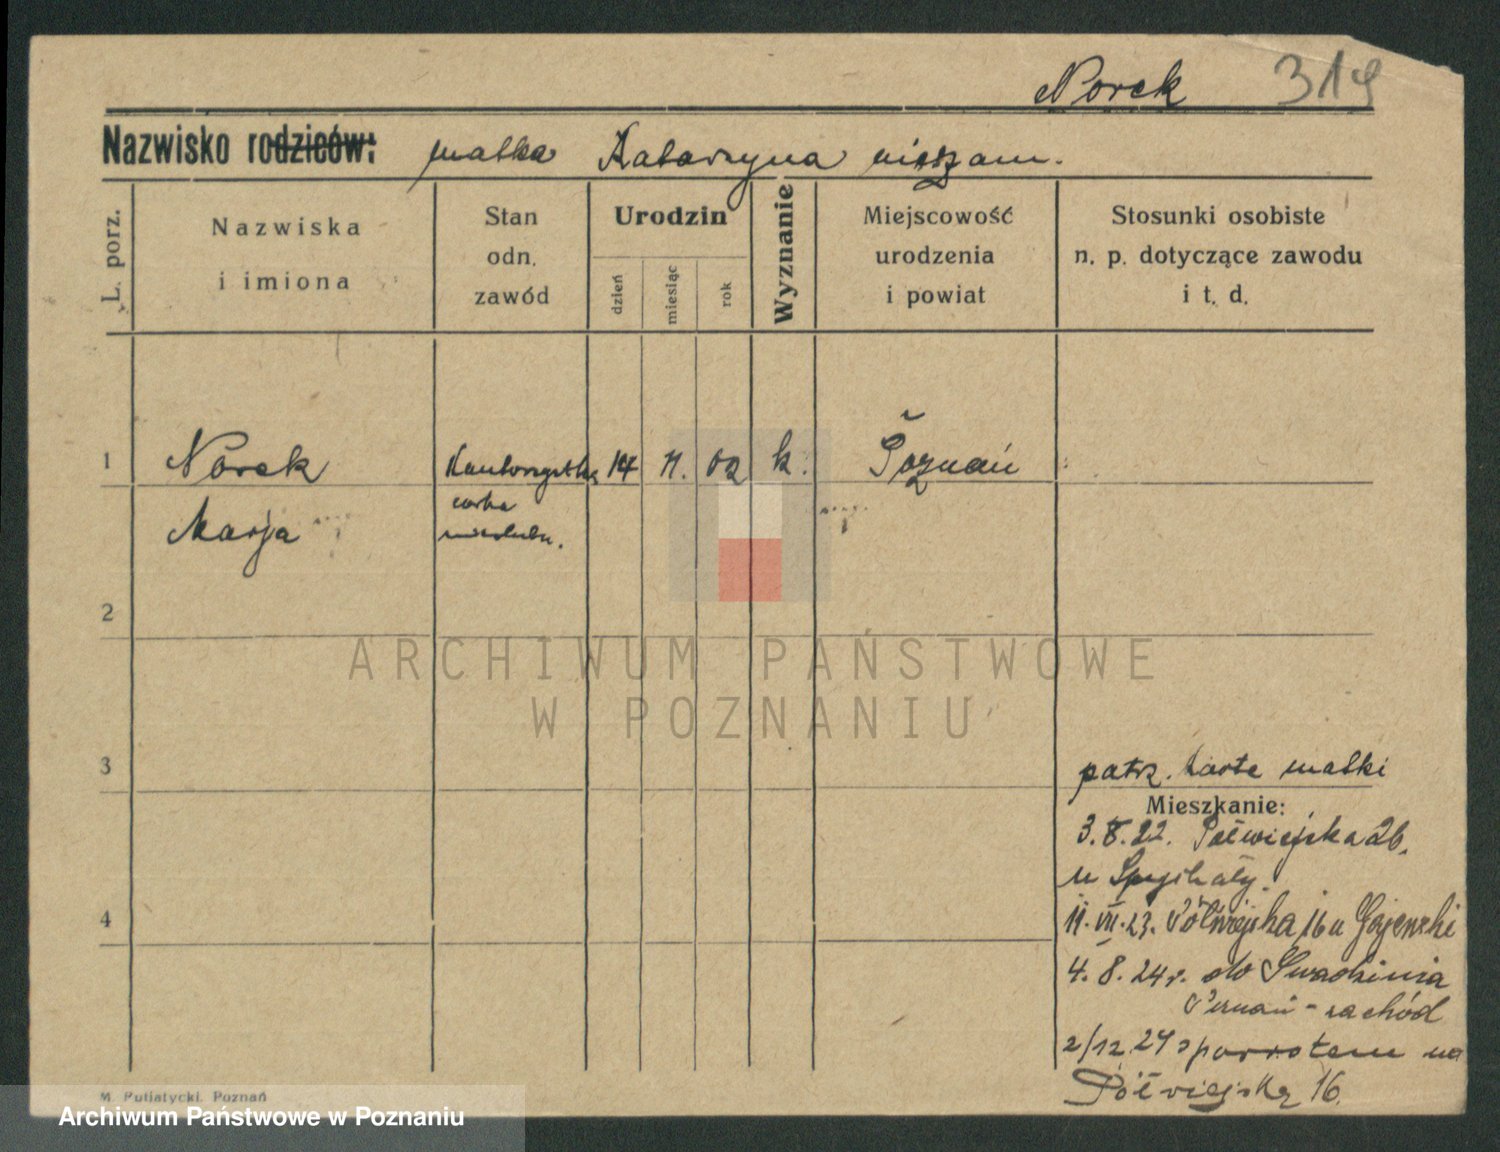 Norek 319
Nazwisko rodziców: matka Katarzyna niezam.
L. porz.
Nazwiska
i imiona
Stan
odn.
zawód
Urodzin
dzień
miesiąc
rok
Wyznanie
Miejscowość
urodzenia
i powiat
Stosunki osobiste
n. p. dotyczące zawodu
i t. d.
1 Norek Kantorzystka 14 11. 02 k. Poznań
Marja córka
2
3
patrz. karta matki
Mieszkanie:
3. 8. 22. Półwiejska 26.
u Spychały.
4
11. VII. 23. Półwiejska 16 u Gajewski
4. 8. 24 r. do Swadzimia
Poznań - zachód
2/12 24 z powrotem na
Półwiejską 16.
M. Putiatycki, Poznań
ARCHIWUM PAŃSTWOWE
W POZNANIU
Archiwum Państwowe w Poznaniu